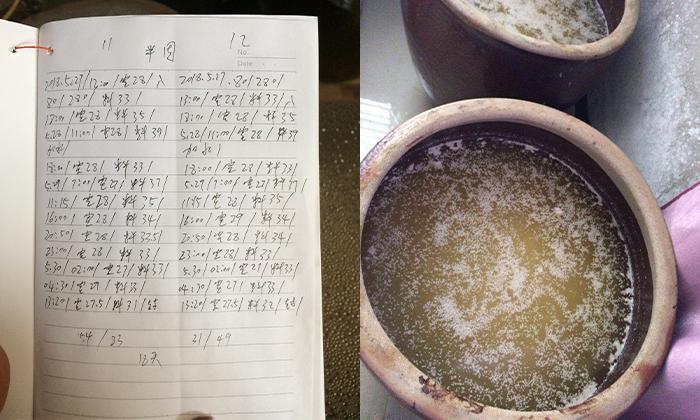 11 半固 12
No.
Date
2018.5.27/12:00/室28/入 2018.5.27.80/280/
80/280/料33/ 13:00/室28/料33/入
18:00/室28/料35/ 18:00/室28/料35
5.28/11:00/室28/料39/ 5.28/11:00/室28/料39
加水/ 加水/
18:00/室28/料33/ 18:00/室28/料33/
5.29/7:00/室27/料37/ 5.29/7:00/室27/料
11:15/室28/料35/ 11:15/室28/料35/
16:00/室28/料34/ 16:00/室29/料34/
20:50/室28/料33.5/ 20:50/室28/料34/
23:00/室28/料33/ 23:00/室28/料33/
5.30/02:00/室27/料33/ 5.30/02:00/室27/料33/
04:30/室27/料33/ 04:30/室27/料33/
13:20/室27.5/料31/结 13:20/室27.5/料32/结/
54/33 31/49
12天